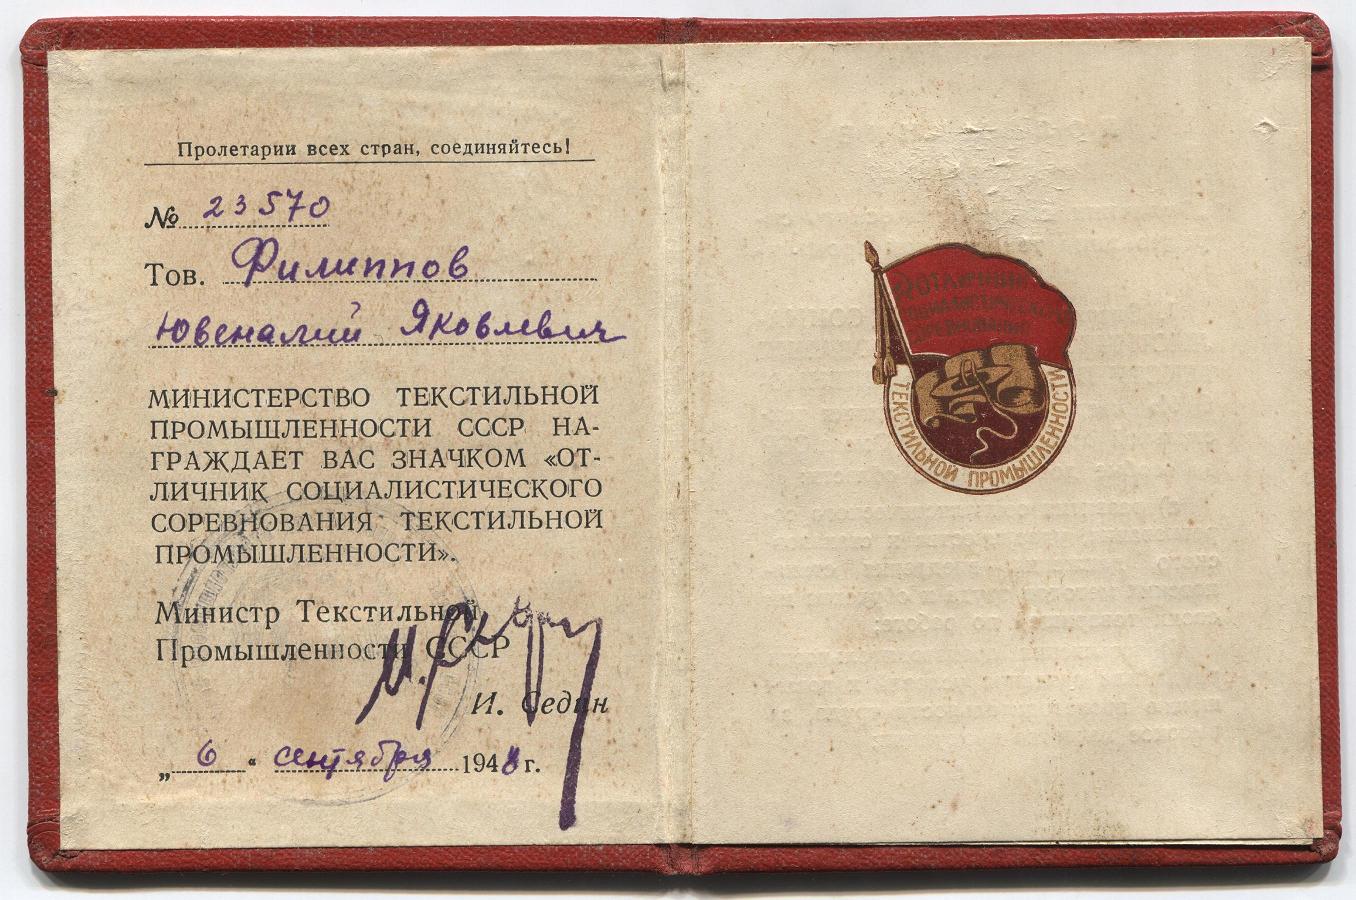 Пролетарии всех стран, соединяйтесь!
№ 23570
Тов. Филиппов
Ювеналий Яковлевич
МИНИСТЕРСТВО ТЕКСТИЛЬНОЙ
ПРОМЫШЛЕННОСТИ СССР НА-
ГРАЖДАЕТ ВАС ЗНАЧКОМ «ОТ-
ЛИЧНИК СОЦИАЛИСТИЧЕСКОГО
СОРЕВНОВАНИЯ ТЕКСТИЛЬНОЙ
ПРОМЫШЛЕННОСТИ».
Министр Текстильной
Промышленности СССР
И. Седин
„ 6 “ сентября 1948 г.
ОТЛИЧНИК
СОЦИАЛИСТИЧЕСКОГО
СОРЕВНОВАНИЯ
ТЕКСТИЛЬНОЙ ПРОМЫШЛЕННОСТИ